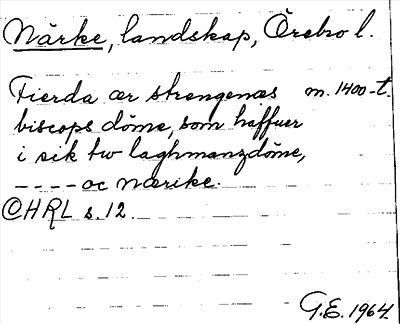 Närke, landskap, Örebro l.
Fierda ær strengenæs m. 1400-t.
biscops döme, som haffuer
i sik tw laghmanzdöme,
---- oc Nærike.
©HRL s. 12
G.E. 1964